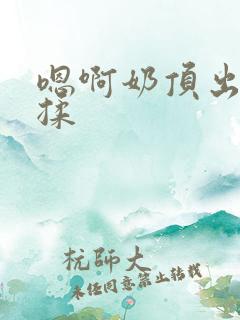 嗯啊奶頂出
揉
杭師大
未任同意禁止转载